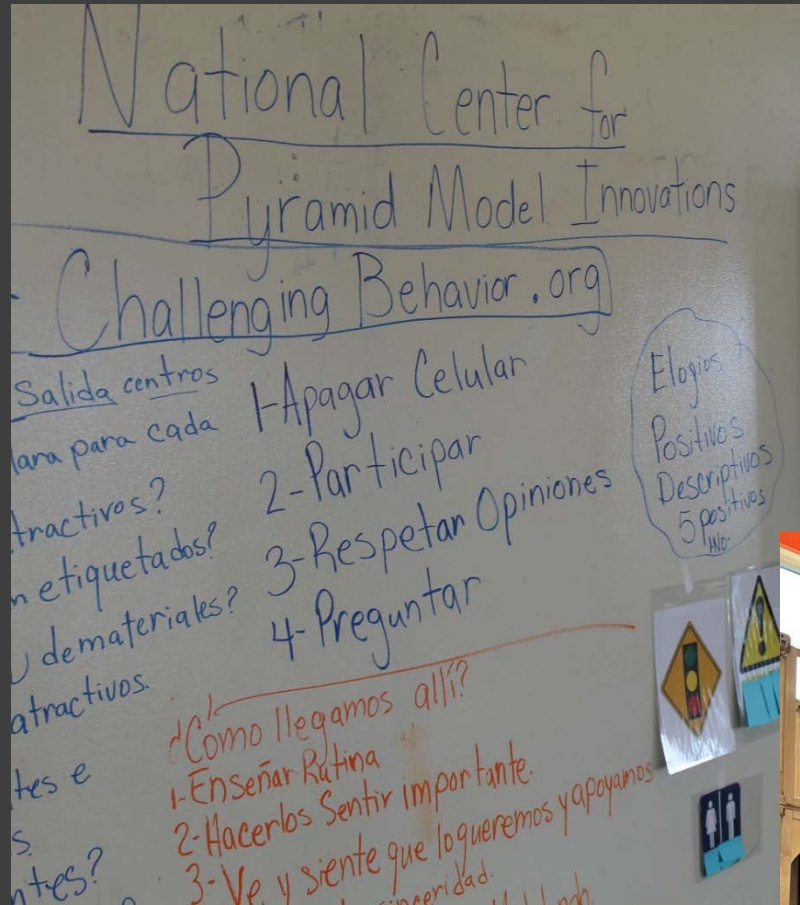 National Center for
Pyramid Model Innovations
Challenging Behavior.org
Salida centros
para cada
etiquetados?
de materiales?
atractivos.
1-Apagar Celular
2-Participar
3-Respetar Opiniones
4-Preguntar
Elogios
Positivos
Descriptivos
5 positivos
¿Cómo llegamos allí?
1-Enseñar Rutina
2-Hacerlos Sentir importante.
3-Ve y siente que lo queremos y apoyamos